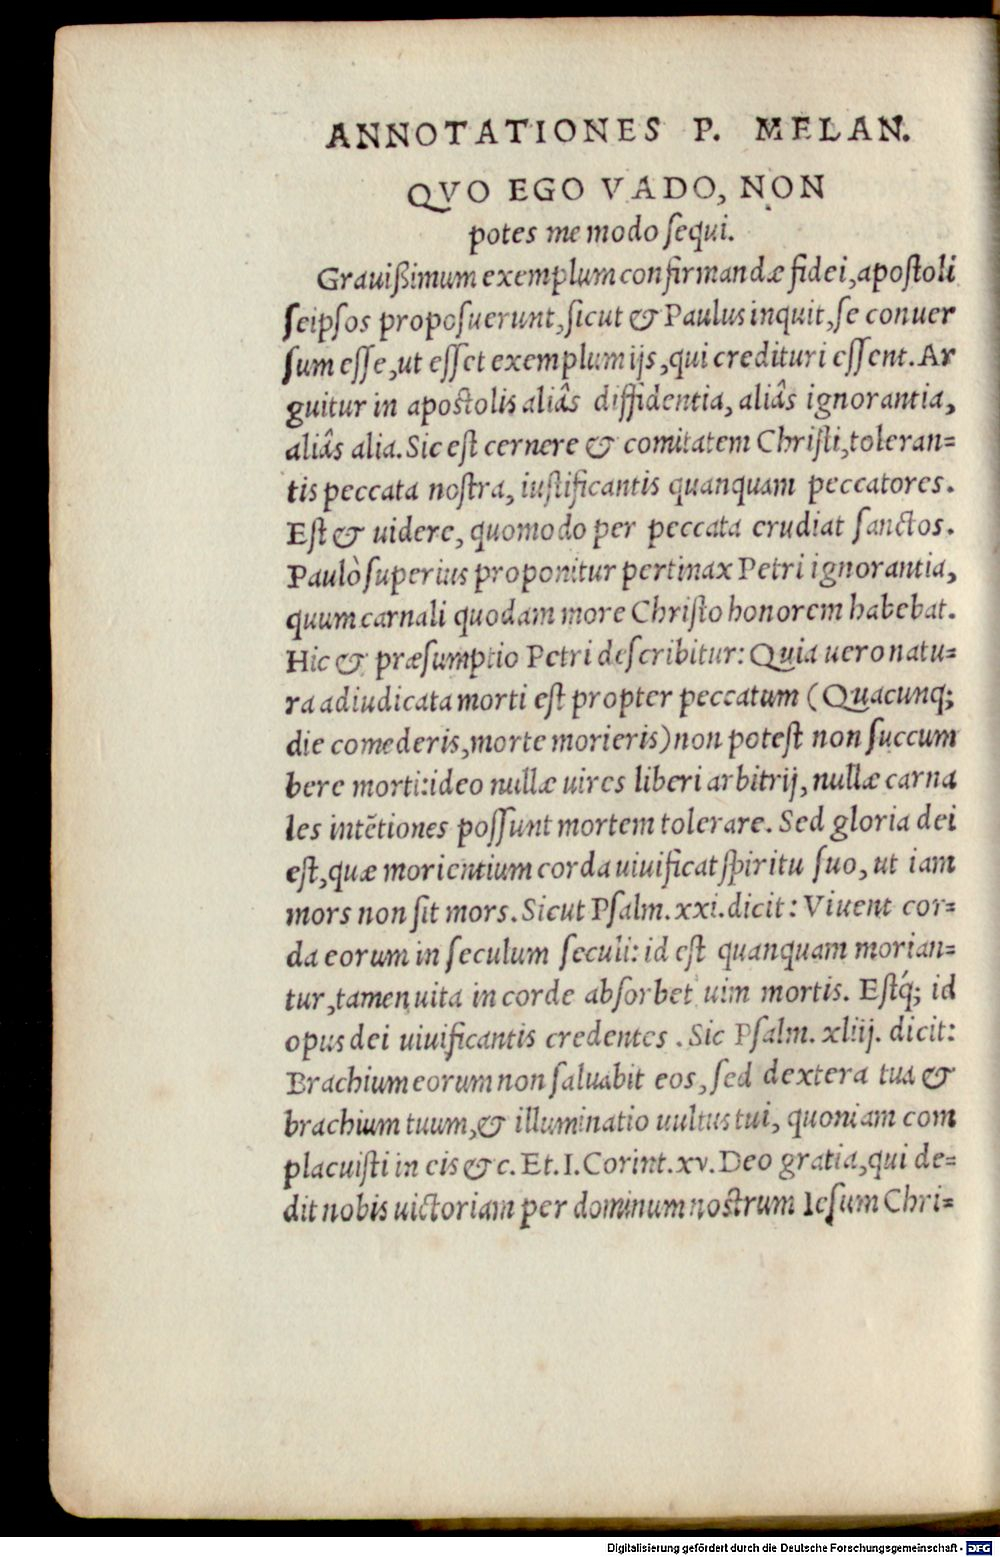 ANNOTATIONES P. MELAN.
QVO EGO VADO, NON
potes me modo ſequi.
Grauiſſimum exemplum confirmandæ fidei, apoſtoli
ſeipſos propoſuerunt, ſicut & Paulus inquit, ſe conuer
ſum eſſe, ut eſſet exemplum ijs, qui credituri eſſent. Ar
guitur in apoſtolis aliâs diffidentia, aliâs ignorantia,
aliâs alia. Sic eſt cernere & comitatem Chriſti, toleran=
tis peccata noſtra, iuſtificantis quanquam peccatores.
Eſt & uidere, quomodo per peccata erudiat ſanctos.
Paulò ſuperius proponitur pertinax Petri ignorantia,
quum carnali quodam more Chriſto honorem habebat.
Hic & præſumptio Petri deſcribitur: Quia uero natu=
ra adiudicata morti eſt propter peccatum (Quacunq;
die comederis, morte morieris) non poteſt non ſuccum
bere morti: ideo nullæ uires liberi arbitrij, nullæ carna
les intẽtiones poſſunt mortem tolerare. Sed gloria dei
eſt, quæ morientium corda uiuificat ſpiritu ſuo, ut iam
mors non ſit mors. Sicut Pſalm. xxi. dicit: Viuent cor=
da eorum in ſeculum ſeculi: id eſt quanquam morian=
tur, tamen uita in corde abſorbet uim mortis. Eſtq́; id
opus dei uiuificantis credentes. Sic Pſalm. xliij. dicit:
Brachium eorum non ſaluabit eos, ſed dextera tua &
brachium tuum, & illuminatio uultus tui, quoniam com
placuiſti in eis & c. Et. I. Corint. xv. Deo gratia, qui de=
dit nobis uictoriam per dominum noſtrum Ieſum Chri=
Digitalisierung gefördert durch die Deutsche Forschungsgemeinschaft - DFG